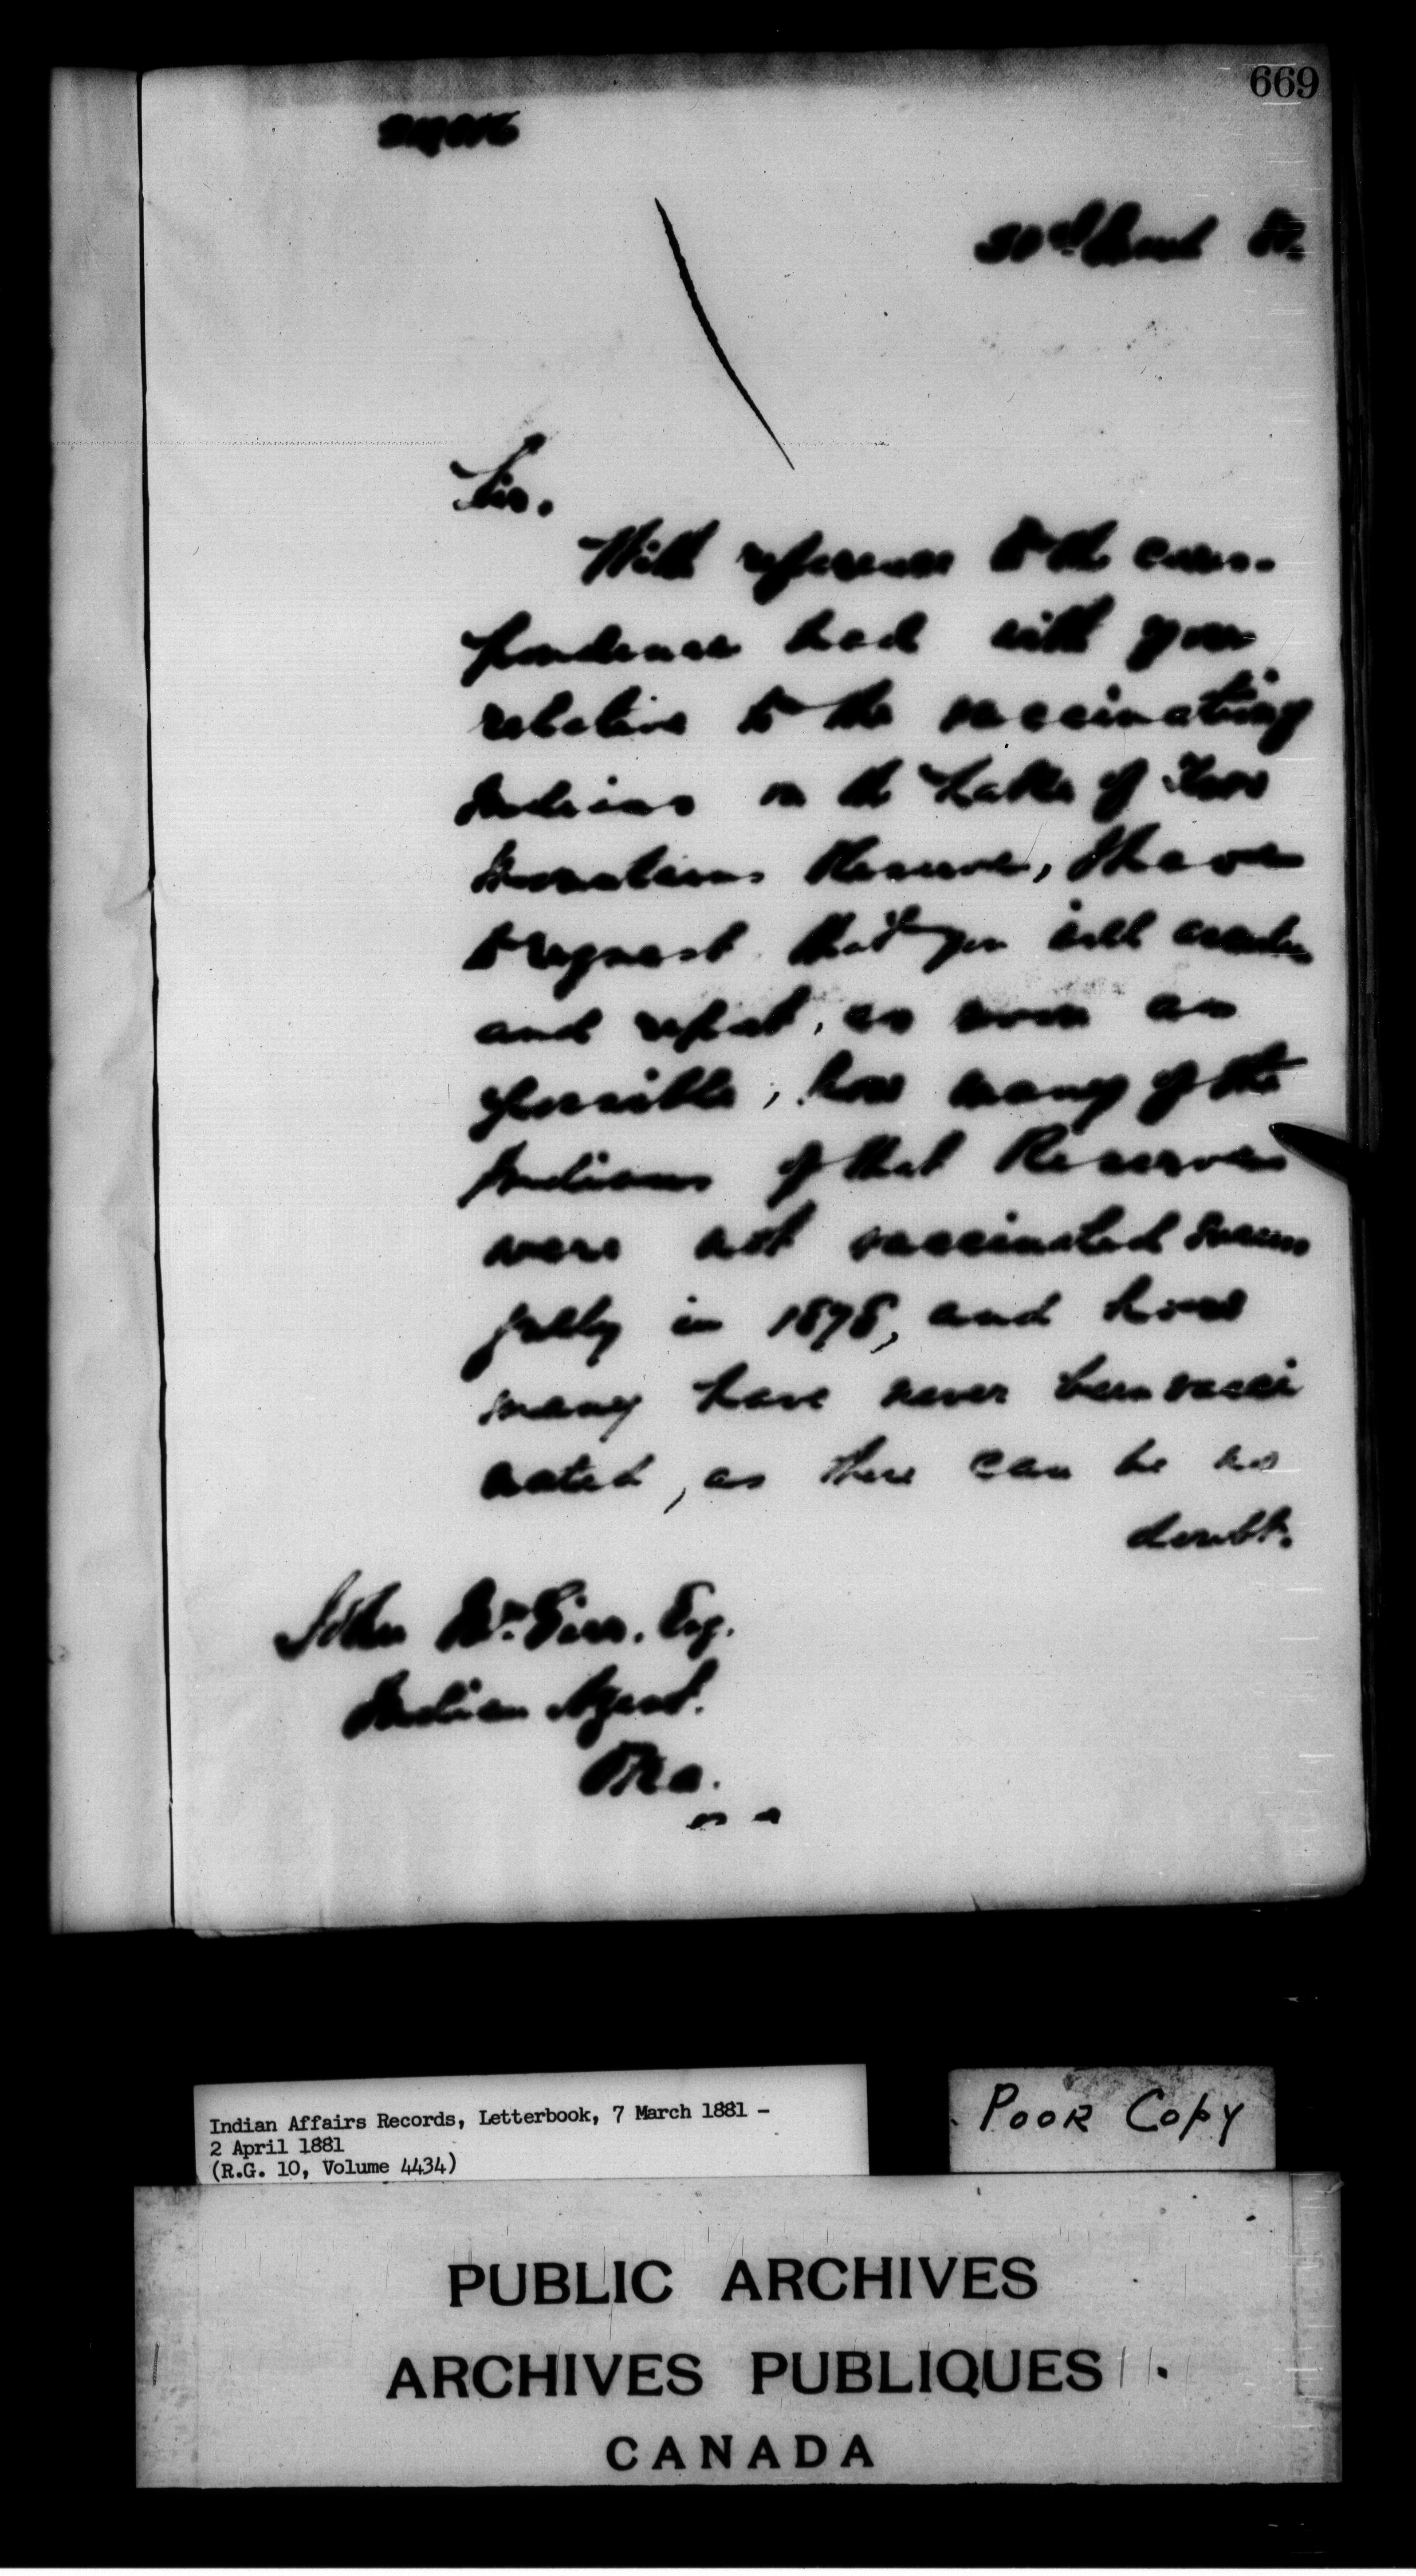 669
Sir.
With reference to the corres-
pondence had with you
relative to the vaccinating
Indians on the Lake of Two
Mountains Reserve, I have
to request that you will
and report, as soon as
possible, how many of the
Indians of that Reserve
were not vaccinated success
fully in 1878, and how
many have never been vacci
nated, as there can be no
doubt.
John Esq.
Indian Agent.
Oka.
Indian Affairs Records, Letterbook, 7 March 1881 -
2 April 1881
(R.G. 10, Volume 4434)
POOR COPY
PUBLIC ARCHIVES
ARCHIVES PUBLIQUES
CANADA